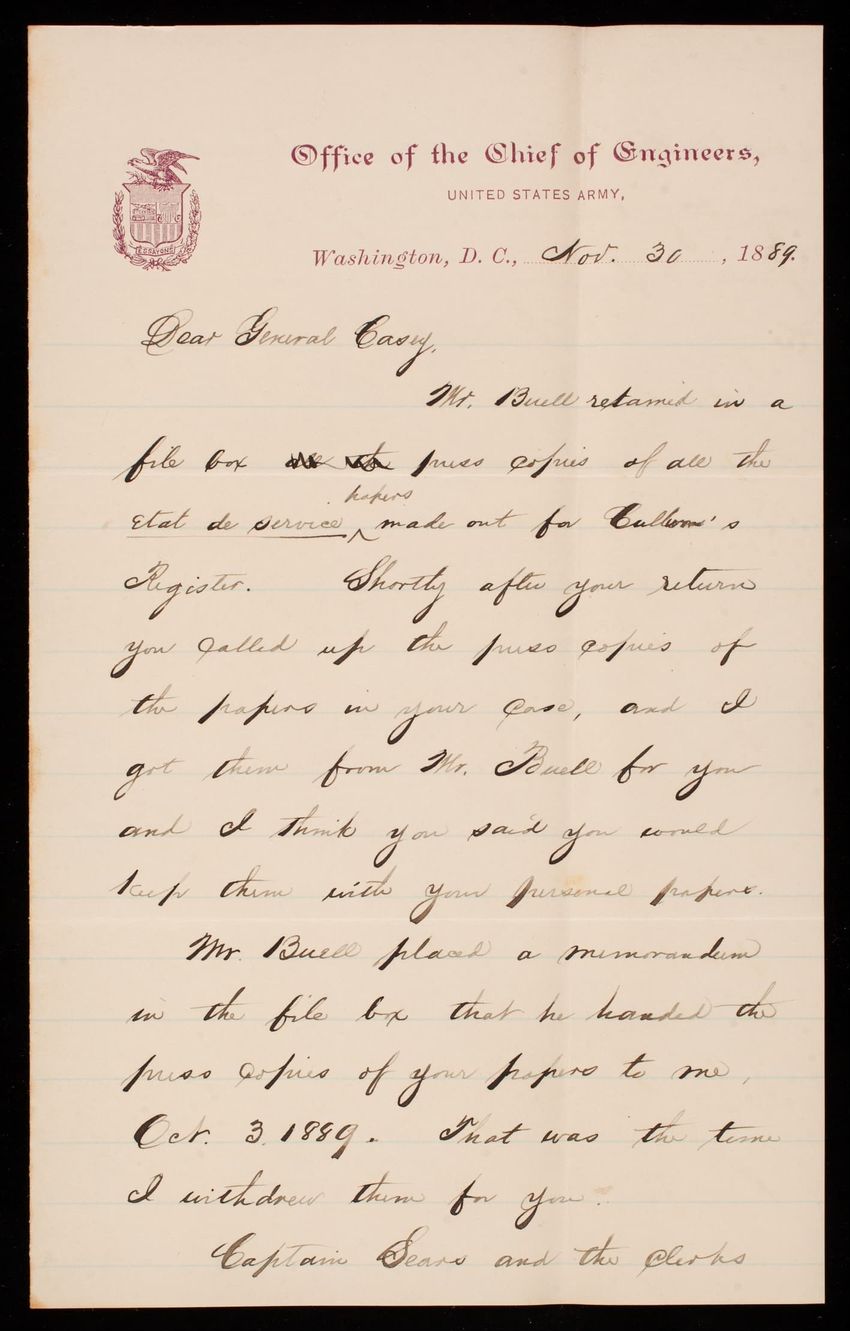 Office of the Chief of Engineers,
UNITED STATES ARMY,
ESSAYONS
Washington, D. C., Nov. 30, 1889.
Dear General Casey,
Mr. Buell retained in a
file box press copies of all the
papers
Etat de service made out for Cullum's
Register. Shortly after your return
you called up the press copies of
the papers in your case, and I
got them from Mr. Buell for you
and I think you said you would
keep them with your personal papers.
Mr. Buell placed a memorandum
in the file box that he handed the
press copies of your papers to me,
Oct. 3. 1889. That was the time
I withdrew them for you.
Captain Sears and the clerks